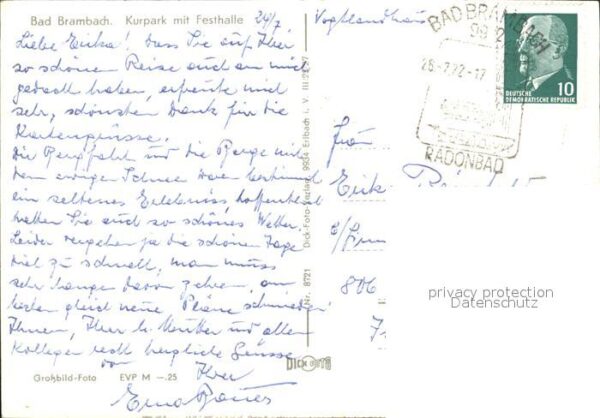 Bad Brambach. Kurpark mit Festhalle
24/7.
Vogtlandhaus
Liebe Erika! dass Sie auf Ihrer
so schönen Reise auch an mich
gedacht haben, erfreute mich
sehr, schönsten Dank für die
Kartengrüsse.
Die Bergfahrt und die Berge mit
dem ewigen Schnee war bestimmt
ein seltenes Erlebniss hoffentlich
hatten Sie auch so schönes Wetter.
Leider vergehen ja die schönen Tage
viel zu schnell, man muss
sehr lange davon zehren, am
besten gleich neue Pläne schmieden!
Ihnen, Ihrer l. Mutter und allen
Kollegen recht herzliche Grüsse
Ihre
Erna
Großbild-Foto EVP M –.25
Nr. 8721 Dick-Foto-Verlag 9934 Erlbach i. V.
DICK FOTO
BAD BRAMBACH
-7.72-17
RADONBAD
10
DEUTSCHE
DEMOKRATISCHE REPUBLIK
Frau
806
privacy protection
Datenschutz